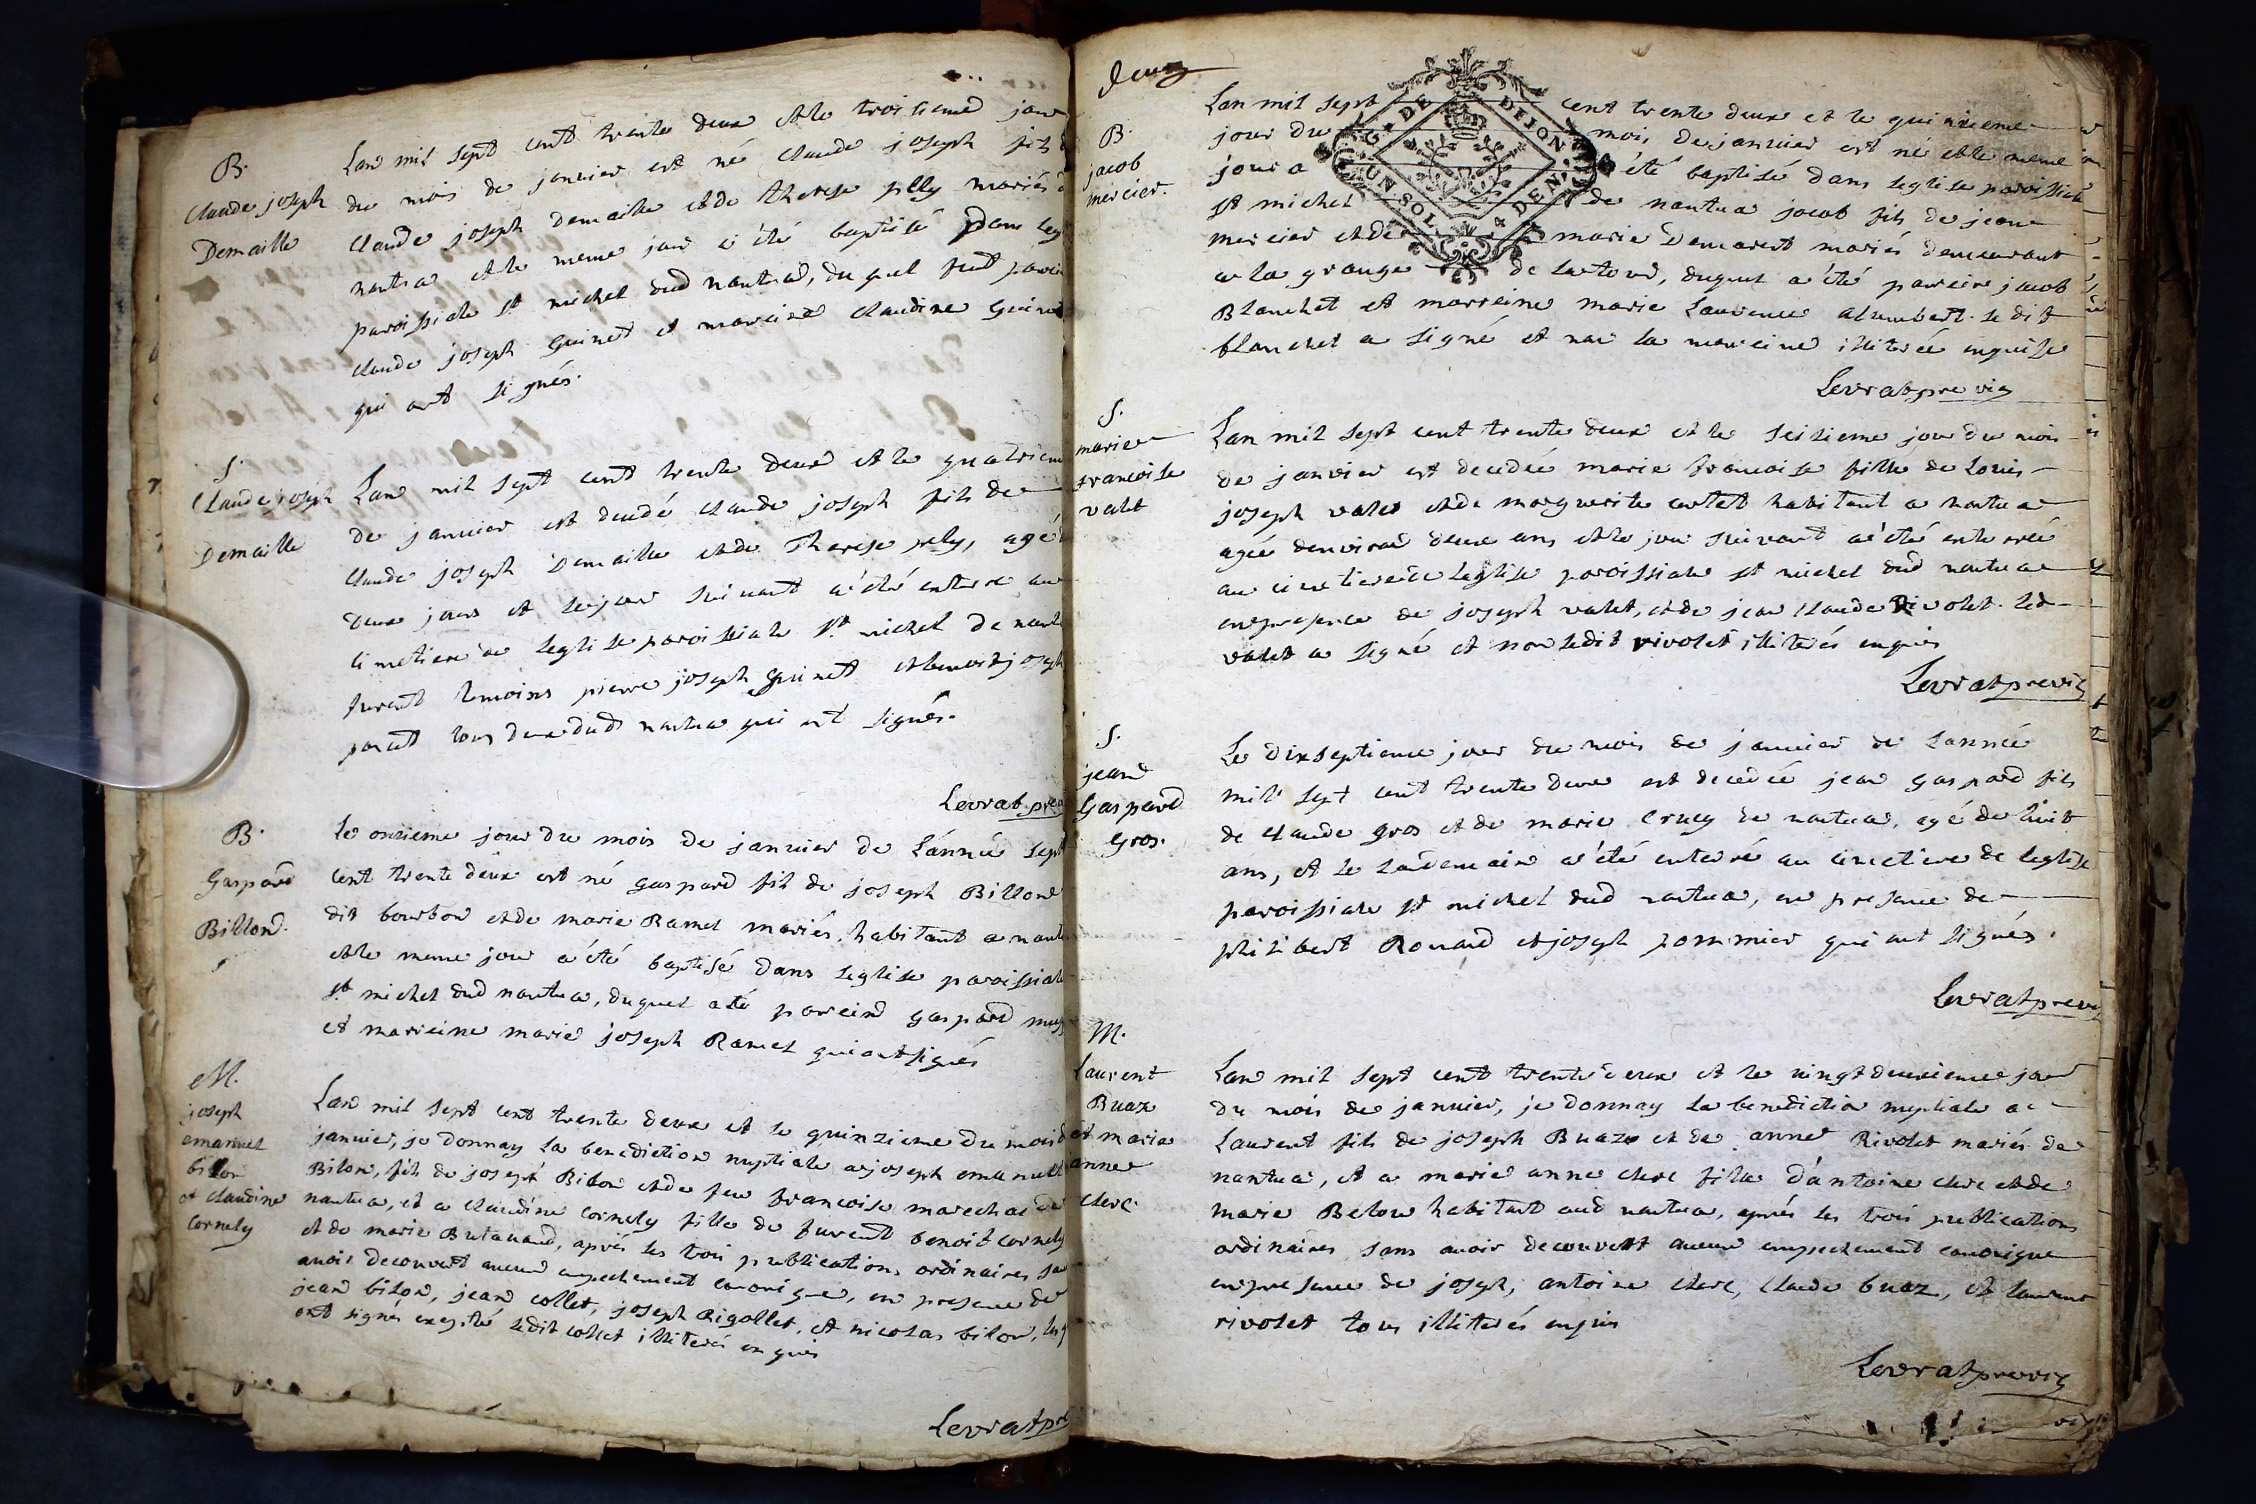 B.
Claude joseph
Demaille
Lan mil sept cent trente deux et le troisieme jour
du mois de janvier est né claude joseph fils d
claude joseph demaille et de therese pilly mariés a
nantua et le meme jour a été baptisé dans leg
paroissiale st michel dud nantua, du quel fut parein
claude joseph Guinet et mareine claudine Guinet
qui ont signés.
S.
Claude joseph
Demaille
Lan mil sept cent trente deux et le quatrieme
de janvier est decedé claude joseph fils de
claude joseph Demaille et de Therese pely, agé d
deux jours et le jour suivant a été enterré au
cimetiere de leglise paroissiale st michel de nant
furent temoins pierre joseph Guinet et benoit joseph
tous deux dud nantua qui ont signés.
Levrat pre
B.
Gaspard
Billon.
Le onzieme jour du mois de janvier de Lannée sept
cent trente deux est né gaspard fils de joseph Billon
dit bourbon et de marie Ramel mariés, habitant a nant
et le meme jour a été baptisé dans leglise paroissiale
st michel dud nantua, duquel a été parein gaspard
et marreine marie joseph Ramel qui ont signés
M.
joseph
emanuel
bilon
et claudine
cornely
Lan mil sept cent trente deux et le quinzieme du mois d
janvier, je donnay la benediction nuptiale a joseph emanuel
Bilon, fils de joseph Bilon et de feu francoise marechal de
nantua, et a claudine cornely fille de furent benoit cornely
et de marie Butavand, aprés les trois publications ordinaires sa
avoir decouvert aucun empechement canonique, en presence de
jean bilon, jean collet, joseph Rigollet, et nicolas bilon, lesq
ont signés excepté ledit collet illiterés enquis
Levrat pre
deux
B.
jacob
mercier.
Lan mil sept cent trente deux et le quinzieme
jour du mois de janvier est né et le meme
jour a été baptisé dans leglise paroissiale
st michel de nantua jacob fils de jean
mercier et de marie Demarest mariés demeurant
a la grange de latour, duquel a été parein jacob
Blanchet et marreine marie Laurence alumbert. ledit
blanchet a signé et non la mareine illiterée enquise
Levrat pre vic
G. DE DIJON
UN SOL 4 DEN
S.
marie
francoise
valet
Lan mil sept cent trente deux et le seizieme jour du mois
de janvier est decedée marie francoise fille de Louis
joseph valet et de marguerite cartet habitant a nantua
agée denviron deux ans et le jour suivant a été enterrée
au cimetiere de leglise paroissiale st michel dud nantua
en presence de joseph valet, et de jean claude Rivolet. led
valet a signé et non ledit rivolet illiterés enquis
Levrat pre vic
S.
jean
Gaspard
Gros.
Le dixseptieme jour du mois de janvier de Lannée
mil sept cent trente deux est decedée jean gaspard fils
de claude gros et de marie crucy de nantua, agé de huit
ans, et le Lendemain a été enterré au cimetiere de leglise
paroissiale st michel dud nantua, en presence de
philibert Rouard et joseph pommier qui ont signés.
Levrat pre vi
M.
Laurent
Buaz
et marie
anne
clerc.
Lan mil sept cent trente deux et le vingt deuxieme jour
du mois de janvier, je donnay la benediction nuptiale a
Laurent fils de joseph Buaz et de anne Rivolet mariés de
nantua, et a marie anne clerc fille d'antoine clerc et de
marie Below habitant aud nantua, aprés les trois publications
ordinaires sans avoir decouvert aucun empechement canonique
en presence de joseph, antoine clerc, claude buaz, et laurent
rivolet tous illiterés enquis
Levrat pre vic